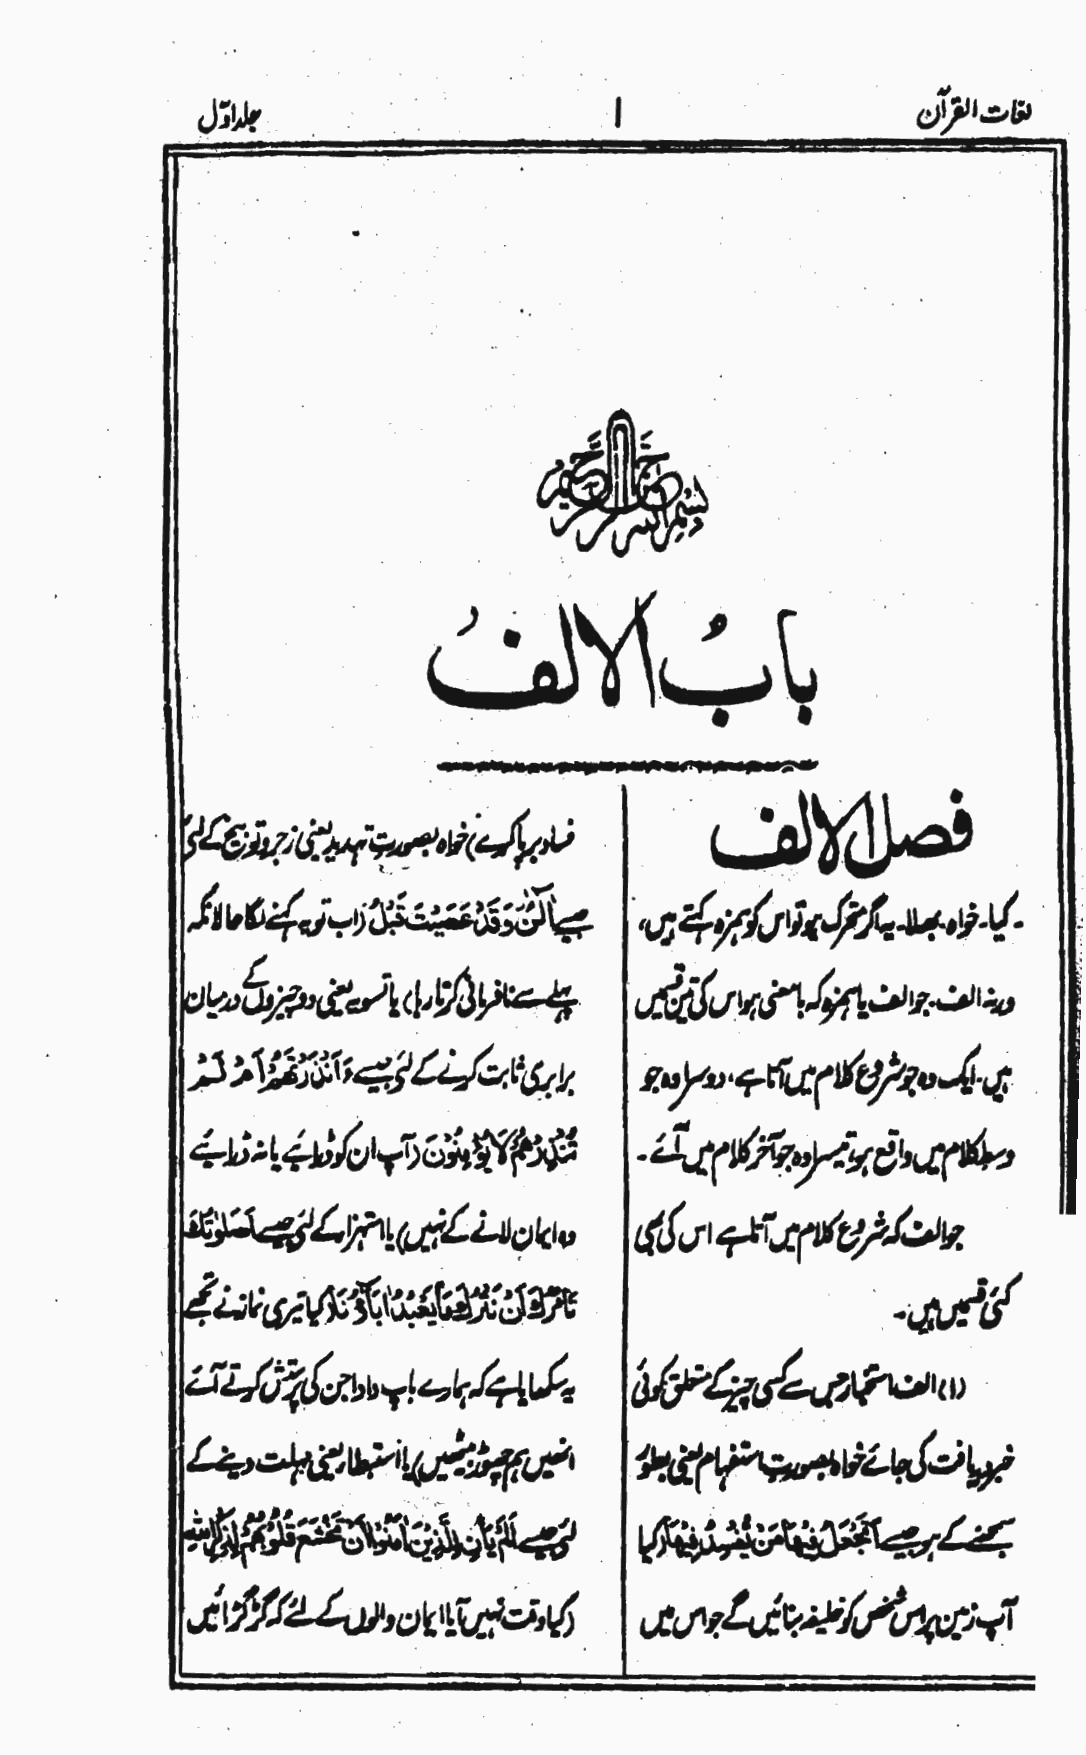 لغات القرآن
۱
جلد اوّل
بسم اللہ الرحمن الرحیم
بابُ الالفُ
فصل الالف
۔ کیا۔ خواہ۔ بھلا۔ یہ اگر متحرک ہو تو اس کو ہمزہ کہتے ہیں،
ورنہ الف۔ جو الف یا ہمزہ کہ بامعنی ہو اس کی تین قسمیں
ہیں۔ ایک وہ جو شروع کلام میں آتا ہے، دوسرا وہ جو
وسط کلام میں واقع ہو، تیسرا وہ جو آخر کلام میں آئے۔
جو الف کہ شروع کلام میں آتا ہے اس کی بھی
کئی قسمیں ہیں۔
(۱) الف استخبار جس سے کسی چیز کے متعلق کوئی
خبر دریافت کی جائے خواہ بصورتِ استفہام یعنی بطور
سمجھنے کے ہو جیسے اَتَجْعَلُ فِیْھَا مَنْ یُّفْسِدُ فِیْھَا (کیا
آپ زمین پر اس شخص کو خلیفہ بنائیں گے جو اس میں
فساد برپا کرے) خواہ بصورتِ تہدید یعنی زجر و توبیخ کے لئے
جیسے اٰلْـٰٔنَ وَقَدْ عَصَیْتَ قَبْلُ (اب تو یہ کہنے لگا حالانکہ
پہلے سے نافرمانی کرتا رہا) یا تسویہ یعنی دو چیزوں کے درمیان
برابری ثابت کرنے کے لئے جیسے ءَاَنْذَرْتَھُمْ اَمْ لَمْ
تُنْذِرْھُمْ لَا یُؤْمِنُوْنَ (آپ ان کو ڈرائیے یا نہ ڈرائیے
وہ ایمان لانے کے نہیں) یا استہزا کے لئے جیسے اَصَلٰوتُكَ
تَاْمُرُكَ اَنْ نَّتْرُكَ مَا یَعْبُدُ اٰبَآؤُنَا (کیا تیری نماز نے تجھے
یہ سکھایا ہے کہ ہمارے باپ دادا جن کی پرستش کرتے آئے
انھیں ہم چھوڑ بیٹھیں) یا استبطاء یعنی مہلت دینے کے
لئے جیسے اَلَمْ یَاْنِ لِلَّذِیْنَ اٰمَنُوْا اَنْ تَخْشَعَ قُلُوْبُھُمْ لِذِكْرِ اللّٰہِ
(کیا وقت نہیں آیا ایمان والوں کے لئے کہ گڑگڑائیں